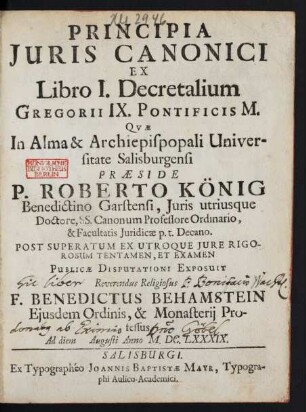 PRINCIPIA
JURIS CANONICI
EX
Libro I. Decretalium
GREGORII IX. PONTIFICIS M.
QVÆ
In Alma & Archiepiscopali Univer-
sitate Salisburgensi
PRÆSIDE
P. ROBERTO KÖNIG
Benedictino Garstensi, Juris utriusque
Doctore, SS. Canonum Professore Ordinario,
& Facultatis Juridicæ p.t. Decano.
POST SUPERATUM EX UTROQUE JURE RIGO-
ROSUM TENTAMEN, ET EXAMEN
PUBLICÆ DISPUTATIONI EXPOSUIT
Reverendus Religiosus
F. BENEDICTUS BEHAMSTEIN
Ejusdem Ordinis, & Monasterij Pro-
fessus
Ad diem Augusti Anno M. DC. LXXXIX.
SALISBURGI.
Ex Typographéo JOANNIS BAPTISTÆ MAYR, Typogra-
phi Aulico-Academici.